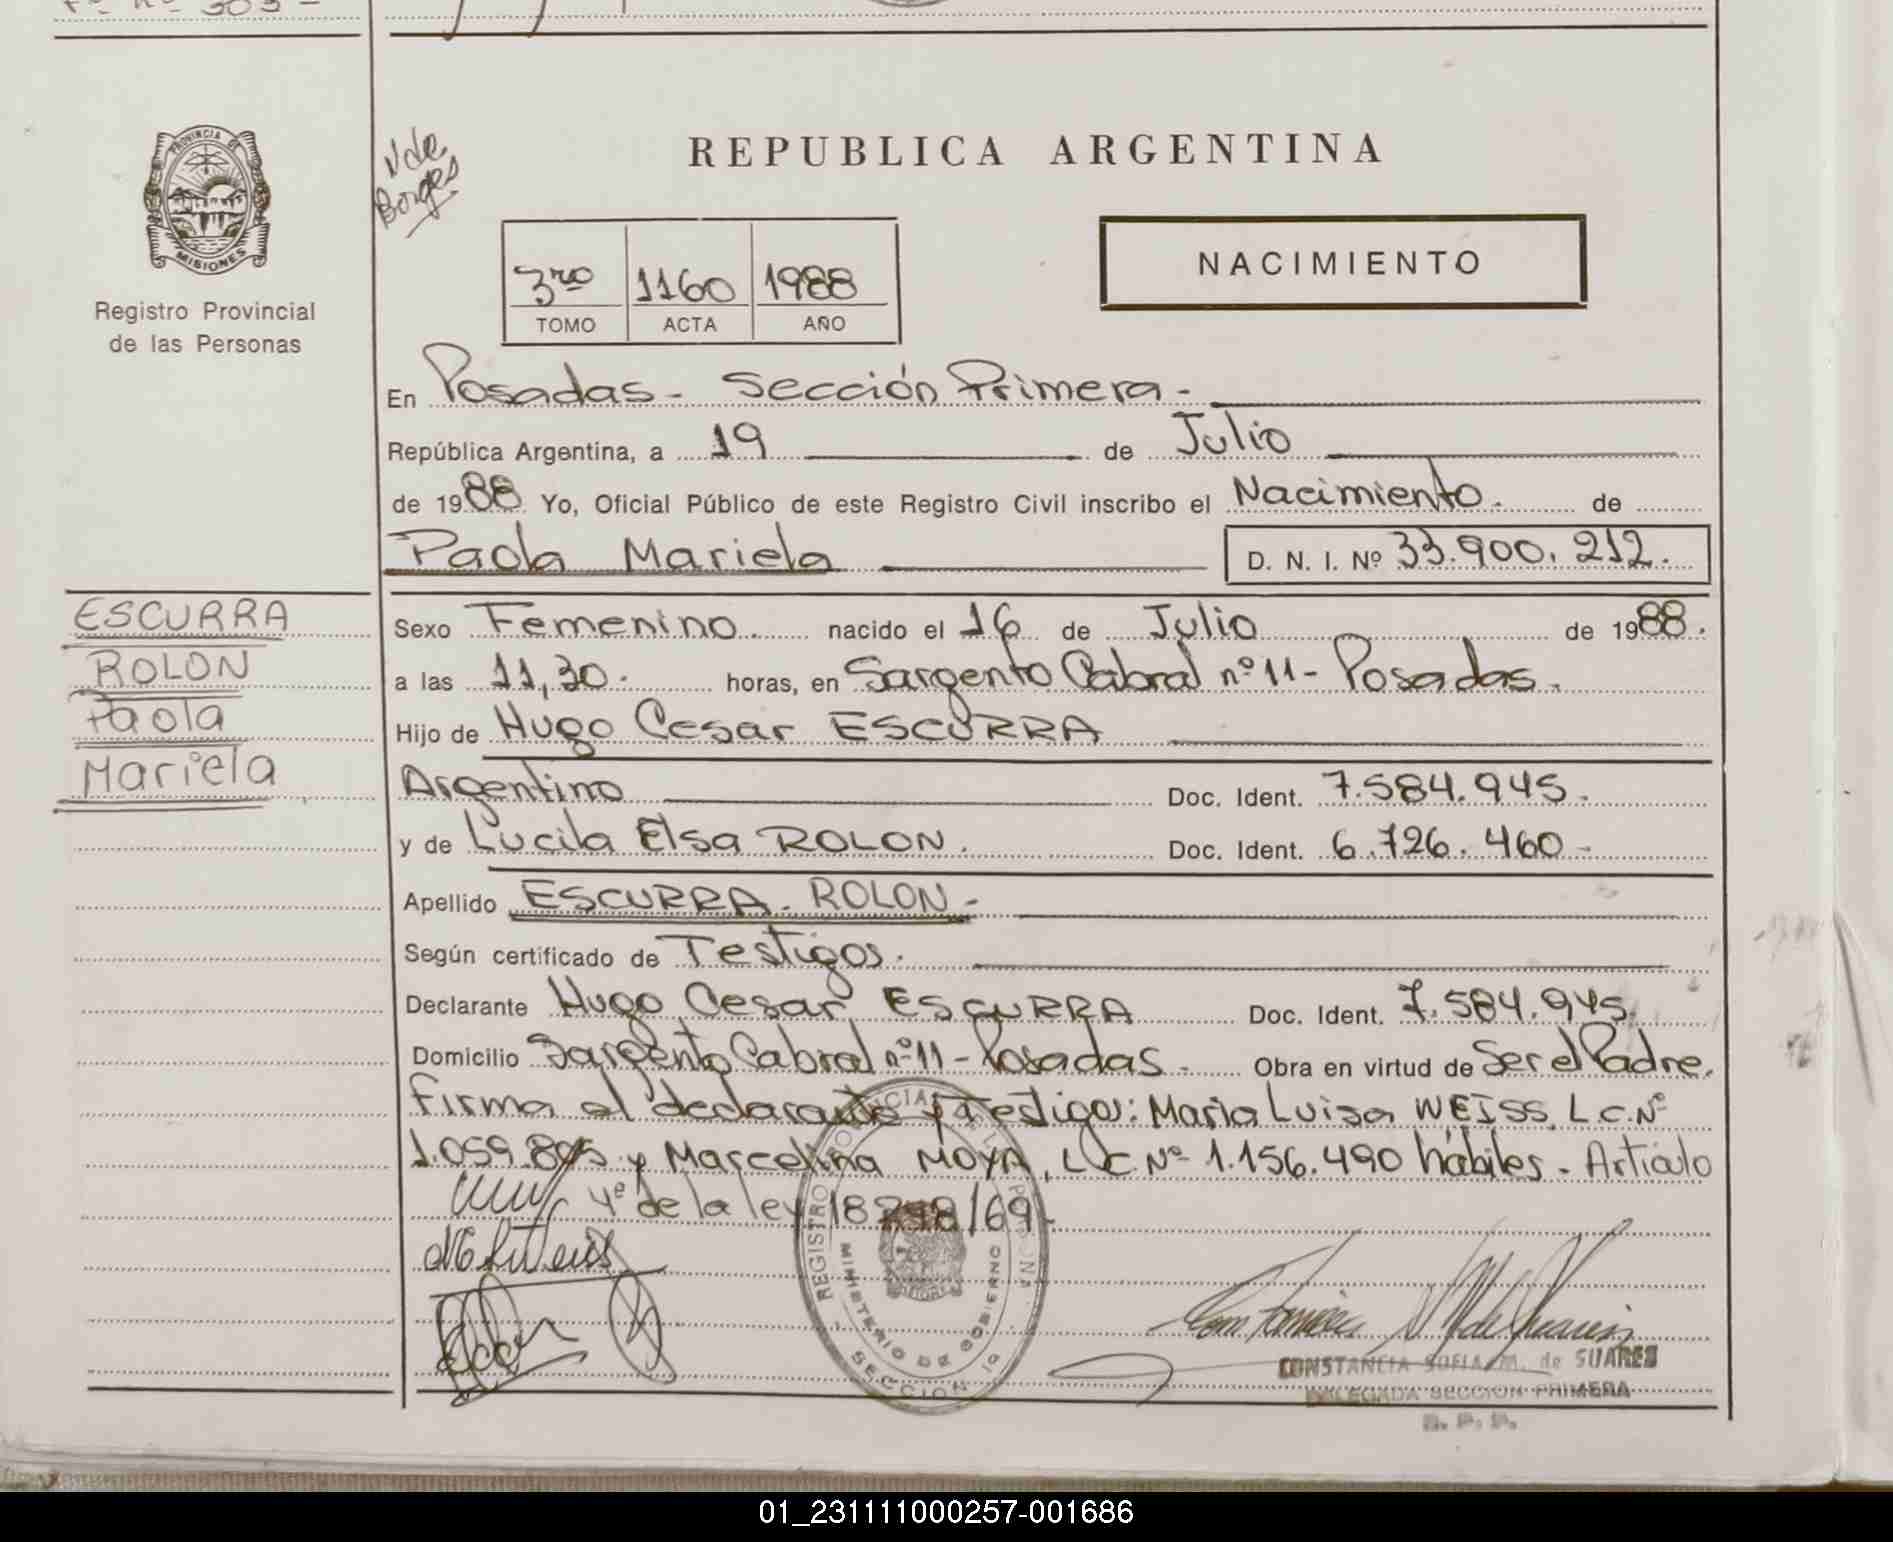 Fº Nº 303 -
PROVINCIA DE
MISIONES
Registro Provincial
de las Personas
V de
Borges
REPUBLICA ARGENTINA
3ro 1160 1988
TOMO ACTA AÑO
NACIMIENTO
En Posadas - Sección Primera -
República Argentina, a 19 de Julio
de 1988 Yo, Oficial Público de este Registro Civil inscribo el Nacimiento. de
Paola Mariela D. N. I. Nº 33.900.212.
ESCURRA
ROLON
Paola
Mariela
Sexo Femenino. nacido el 16 de Julio de 1988.
a las 11,30. horas, en Sargento Cabral nº 11 - Posadas.
Hijo de Hugo Cesar ESCURRA
Argentino Doc. Ident. 7.584.945.
y de Lucila Elsa ROLON. Doc. Ident. 6.726.460 -
Apellido ESCURRA - ROLON -
Según certificado de Testigos.
Declarante Hugo Cesar ESCURRA Doc. Ident. 7.584.945.
Domicilio Sargento Cabral nº 11 - Posadas. Obra en virtud de Ser el Padre.
Firma el declarante y Testigos: Maria Luisa WEISS, L.C. Nº
1.059.895 y Marcelina MOYA, L.C. Nº 1.156.490 hábiles - Artículo
4º de la ley 18248/69.
REGISTRO PROVINCIAL DE LAS PERSONAS
MINISTERIO DE GOBIERNO
SECCION 1a
CONSTANCIA SOFIA M. de SUARES
DELEGADA SECCION PRIMERA
R. P. P.
01_231111000257-001686